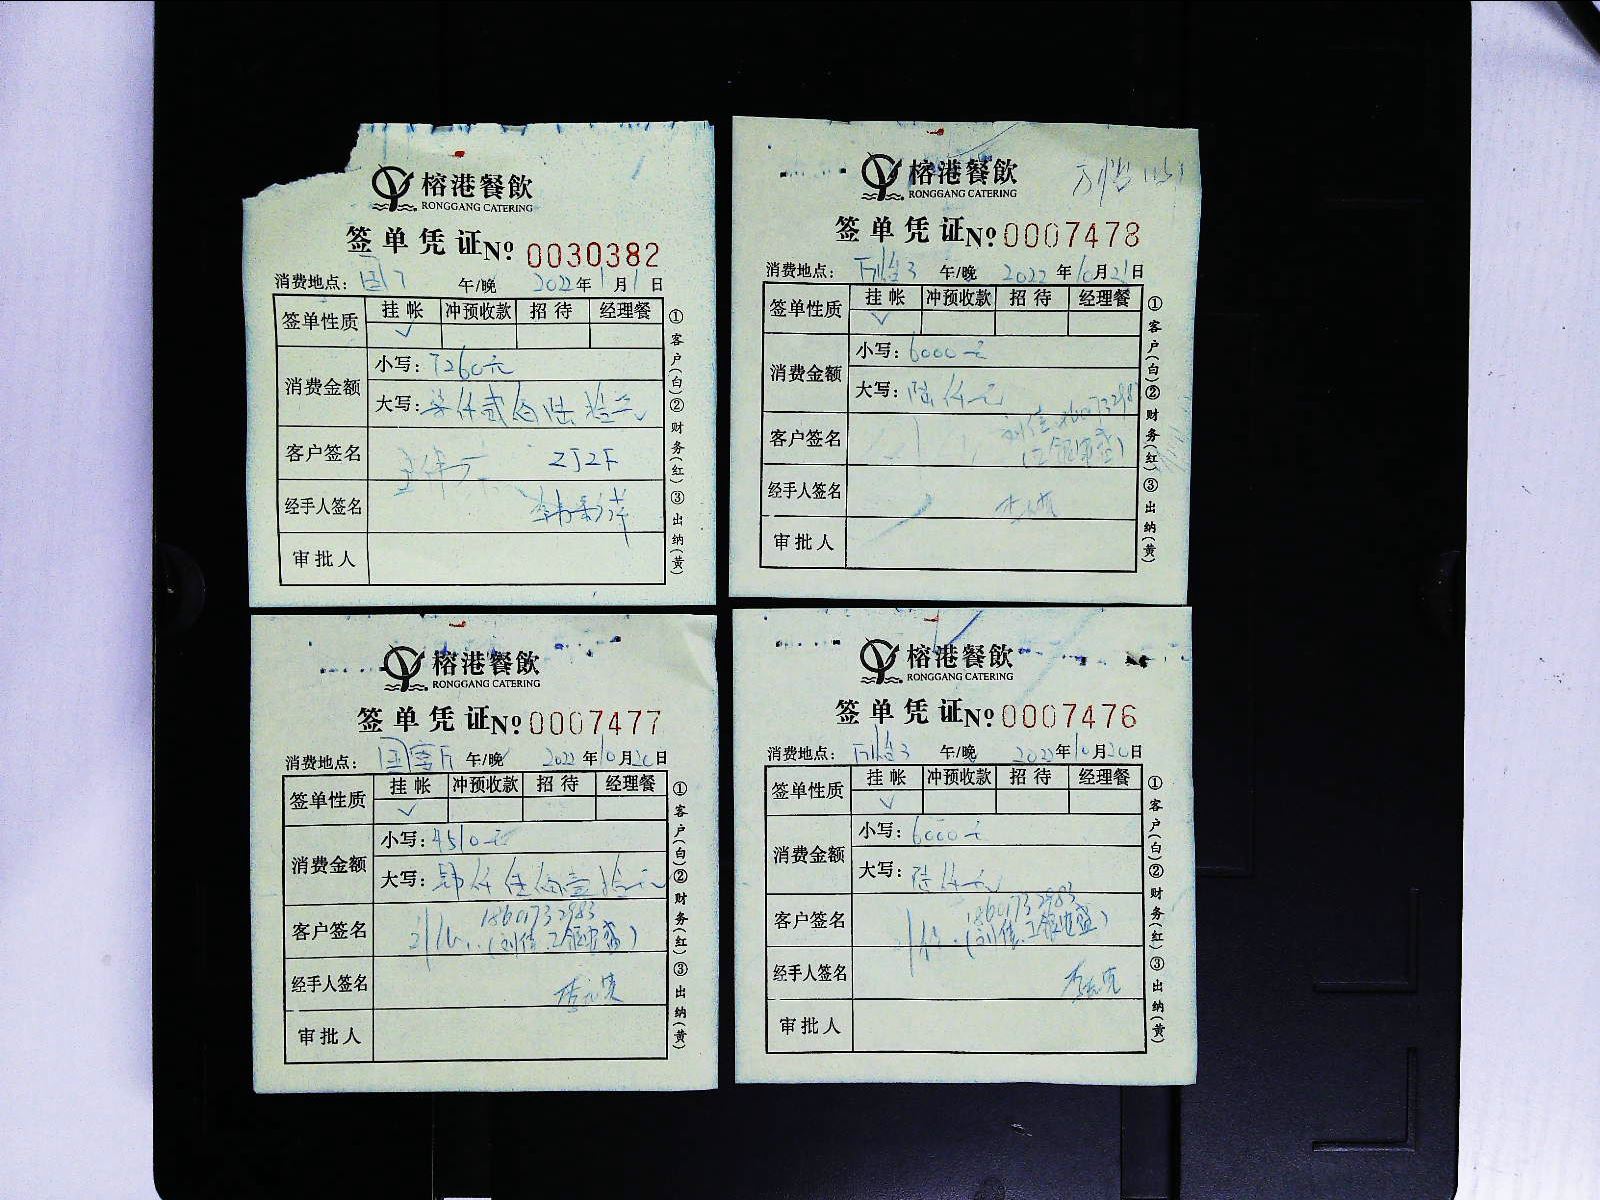 榕港餐飲
RONGGANG CATERING
签单凭证 Nº 0030382
消费地点: 午/晚 2022年1月1日
签单性质 挂帐 冲预收款 招待 经理餐
✓
消费金额 小写: 7260元
大写: 柒仟贰佰陆拾元
客户签名 ZJZF
经手人签名
审批人
①客户(白)②财务(红)③出纳(黄)
榕港餐飲
RONGGANG CATERING
签单凭证 Nº 0007478
消费地点: 午/晚 2022年10月21日
签单性质 挂帐 冲预收款 招待 经理餐
✓
消费金额 小写: 6000元
大写: 陆仟元
客户签名 刘信 18601732983
经手人签名
审批人
①客户(白)②财务(红)③出纳(黄)
榕港餐飲
RONGGANG CATERING
签单凭证 Nº 0007477
消费地点: 国宴厅 午/晚 2022年10月20日
签单性质 挂帐 冲预收款 招待 经理餐
✓
消费金额 小写: 4510元
大写: 肆仟伍佰壹拾元
客户签名 18601732983
(刘信
经手人签名
审批人
①客户(白)②财务(红)③出纳(黄)
榕港餐飲
RONGGANG CATERING
签单凭证 Nº 0007476
消费地点: 午/晚 2022年10月20日
签单性质 挂帐 冲预收款 招待 经理餐
✓
消费金额 小写: 6000元
大写: 陆仟元
客户签名 18601732983
(刘信
经手人签名
审批人
①客户(白)②财务(红)③出纳(黄)